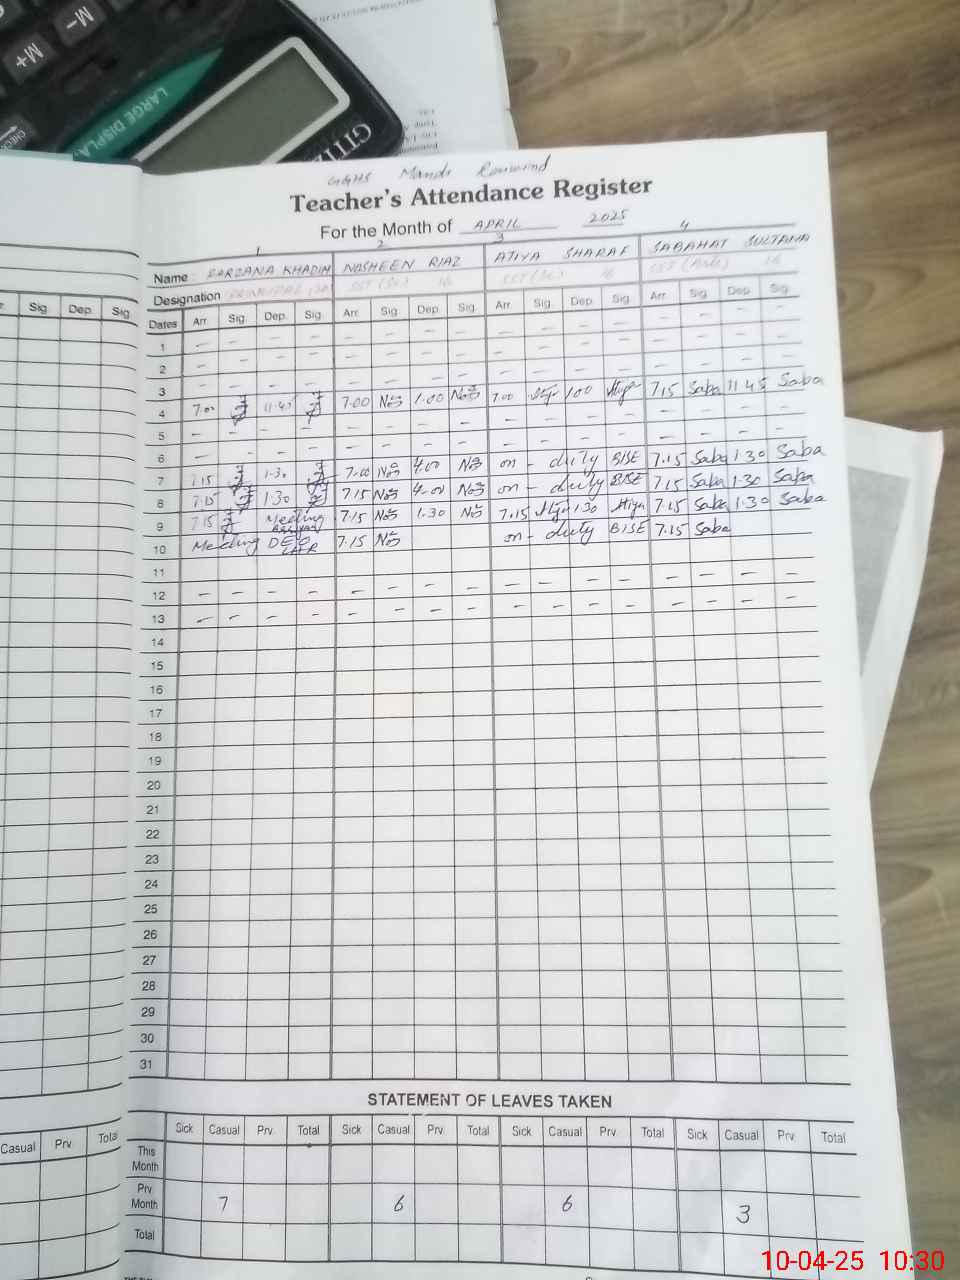 M-
M+
CHECK
LARGE DISPLA
CITIZ
GGHS Mandi Raiwind
Teacher's Attendance Register
For the Month of APRIL 2025
1 2 3 4
Name FARZANA KHADIM NOSHEEN RIAZ ATIYA SHARAF SABAHAT SULTANA
Designation PRINCIPAL SST (Sc) 16 SST (Sc) 16 SST (Arts) 16
Sig. Dep. Sig.
Dates Arr. Sig. Dep. Sig. Arr. Sig. Dep. Sig. Arr. Sig. Dep. Sig. Arr. Sig. Dep. Sig.
1 - - - - - - - - - - - - - - - -
2 - - - - - - - - - - - - - - - -
3 - - - - - - - - - - - - - - - -
4 7.00 11.45 7.00 Nos 1.00 Nos 7.00 Atiya 1.00 Atiya 7.15 Saba 11.45 Saba
5 - - - - - - - - - - - - - - - -
6 - - - - - - - - - - - - - - - -
7 7.15 1.30 7.00 Nos 4.00 Nos on - duty BISE 7.15 Saba 1.30 Saba
8 7.15 1.30 7.15 Nos 4.00 Nos on - duty BISE 7.15 Saba 1.30 Saba
9 7.15 Meeting 7.15 Nos 1.30 Nos 7.15 Atiya 1.30 Atiya 7.15 Saba 1.30 Saba
10 Meeting DEO LHR 7.15 Nos on - duty BISE 7.15 Saba
11
12 - - - - - - - - - - - - - - - -
13 - - - - - - - - - - - - - - - -
14
15
16
17
18
19
20
21
22
23
24
25
26
27
28
29
30
31
STATEMENT OF LEAVES TAKEN
Casual Prv. Total
Sick Casual Prv. Total Sick Casual Prv. Total Sick Casual Prv. Total Sick Casual Prv. Total
This Month
Prv Month 7 6 6 3
Total
10-04-25 10:30